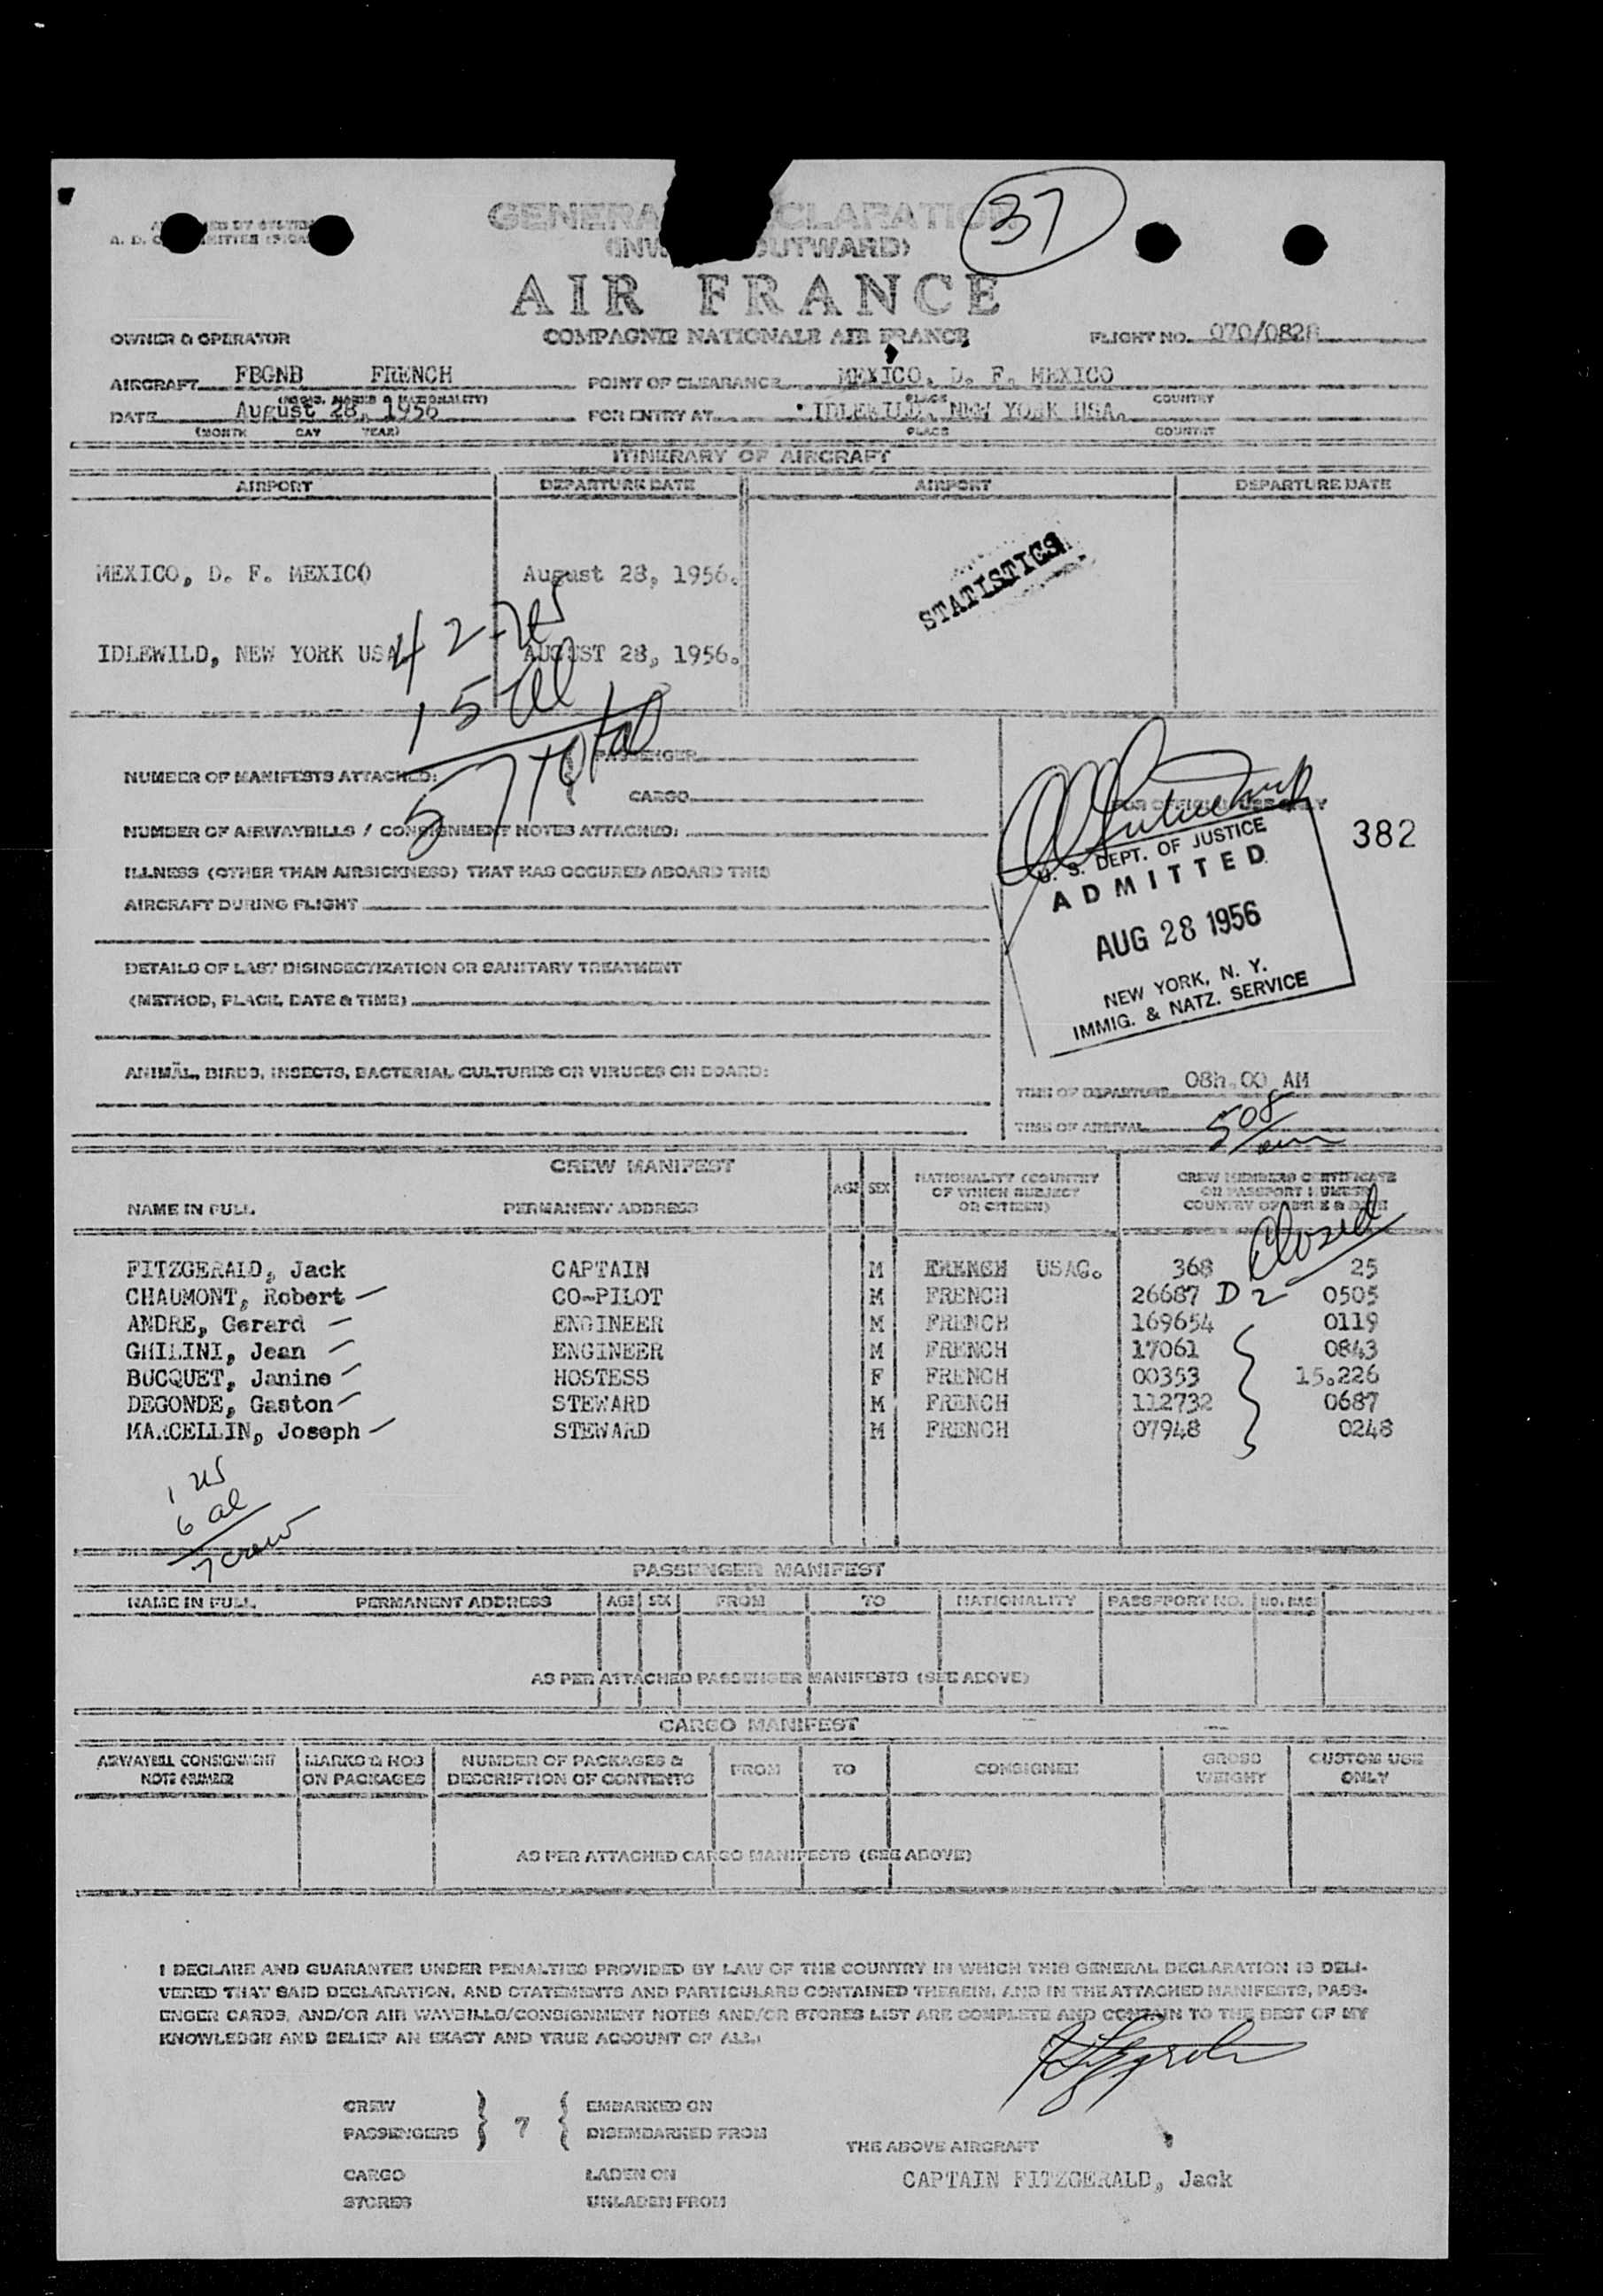 GENERA CLARATION
37
(INW OUTWARD)
AIR FRANCE
OWNER & OPERATOR COMPAGNIE NATIONALE AIR FRANCE FLIGHT NO. 070/0828
AIRCRAFT FBGNB FRENCH POINT OF CLEARANCE MEXICO, D. F. MEXICO
(REGIS. MARKS & NATIONALITY) PLACE COUNTRY
DATE August 28, 1956 FOR ENTRY AT IDLEWILD, NEW YORK USA.
(MONTH DAY YEAR) PLACE COUNTRY
ITINERARY OF AIRCRAFT
AIRPORT DEPARTURE DATE AIRPORT DEPARTURE DATE
MEXICO, D. F. MEXICO August 28, 1956.
STATISTICS
IDLEWILD, NEW YORK USA AUGUST 28, 1956.
42-US
15 al
57 total
PASSENGER
NUMBER OF MANIFESTS ATTACHED:
CARGO
FOR OFFICIAL USE ONLY
NUMBER OF AIRWAYBILLS / CONSIGNMENT NOTES ATTACHED:
382
ILLNESS (OTHER THAN AIRSICKNESS) THAT HAS OCCURED ABOARD THIS
AIRCRAFT DURING FLIGHT
U. S. DEPT. OF JUSTICE
ADMITTED
AUG 28 1956
NEW YORK, N. Y.
IMMIG. & NATZ. SERVICE
DETAILS OF LAST DISINSECTIZATION OR SANITARY TREATMENT
(METHOD, PLACE, DATE & TIME)
ANIMAL, BIRDS, INSECTS, BACTERIAL CULTURES OR VIRUSES ON BOARD:
TIME OF DEPARTURE 08h.00 AM
TIME OF ARRIVAL 508
CREW MANIFEST
NAME IN FULL PERMANENT ADDRESS AGE SEX NATIONALITY (COUNTRY OF WHICH SUBJECT OR CITIZEN) CREW MEMBERS CERTIFICATE OR PASSPORT NUMBER COUNTRY OF ISSUE & DATE
Closed
FITZGERALD, Jack CAPTAIN M FRENCH USAC. 368 25
CHAUMONT, Robert CO-PILOT M FRENCH 26687 D2 0505
ANDRE, Gerard ENGINEER M FRENCH 169654 0119
GHILINI, Jean ENGINEER M FRENCH 17061 0843
BUCQUET, Janine HOSTESS F FRENCH 00353 15.226
DEGONDE, Gaston STEWARD M FRENCH 112732 0687
MARCELLIN, Joseph STEWARD M FRENCH 07948 0248
1 US
6 al
7 crew
PASSENGER MANIFEST
NAME IN FULL PERMANENT ADDRESS AGE SEX FROM TO NATIONALITY PASSPORT NO. NO. BAG
AS PER ATTACHED PASSENGER MANIFESTS (SEE ABOVE)
CARGO MANIFEST
AIRWAYBILL CONSIGNMENT NOTE NUMBER MARKS & NOS ON PACKAGES NUMBER OF PACKAGES & DESCRIPTION OF CONTENTS FROM TO CONSIGNEE GROSS WEIGHT CUSTOM USE ONLY
AS PER ATTACHED CARGO MANIFESTS (SEE ABOVE)
I DECLARE AND GUARANTEE UNDER PENALTIES PROVIDED BY LAW OF THE COUNTRY IN WHICH THIS GENERAL DECLARATION IS DELI-
VERED THAT SAID DECLARATION, AND STATEMENTS AND PARTICULARS CONTAINED THEREIN, AND IN THE ATTACHED MANIFESTS, PASS-
ENGER CARDS, AND/OR AIR WAYBILLS/CONSIGNMENT NOTES AND/OR STORES LIST ARE COMPLETE AND CONTAIN TO THE BEST OF MY
KNOWLEDGE AND BELIEF AN EXACT AND TRUE ACCOUNT OF ALL:
CREW EMBARKED ON
PASSENGERS 7 DISEMBARKED FROM
THE ABOVE AIRCRAFT
CARGO LADEN ON
CAPTAIN FITZGERALD, Jack
STORES UNLADEN FROM